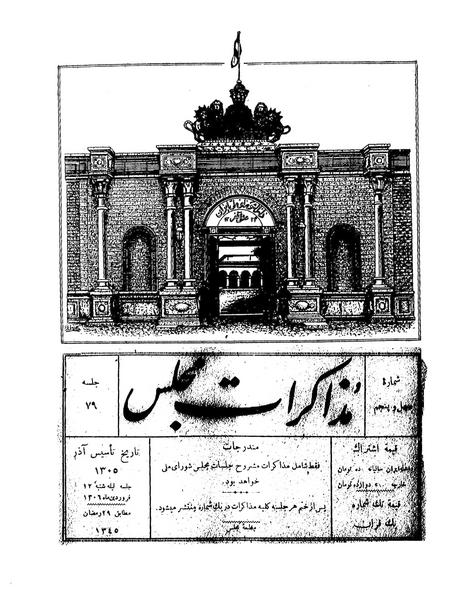 شماره
چهل و پنجم
مذاکرات مجلس
جلسه
۷۹
قیمة اشتراك
داخله ایران سالیانه ده تومان
خارجه دوازده تومان
قیمة تك شماره
يك قران
مندرجات
فقط شامل مذاکرات مشروح جلسات مجلس شورای ملی
خواهد بود.
پس از ختم هر جلسه کلیه مذاکرات در يك شماره منتشر میشود.
مطبعه مجلس
تاریخ تأسیس آذر
۱۳۰۵
جلسه لیله شنبه ۱۲
فروردین ماه ۱۳۰۶
مطابق ۲۹ رمضان
۱۳۴۵